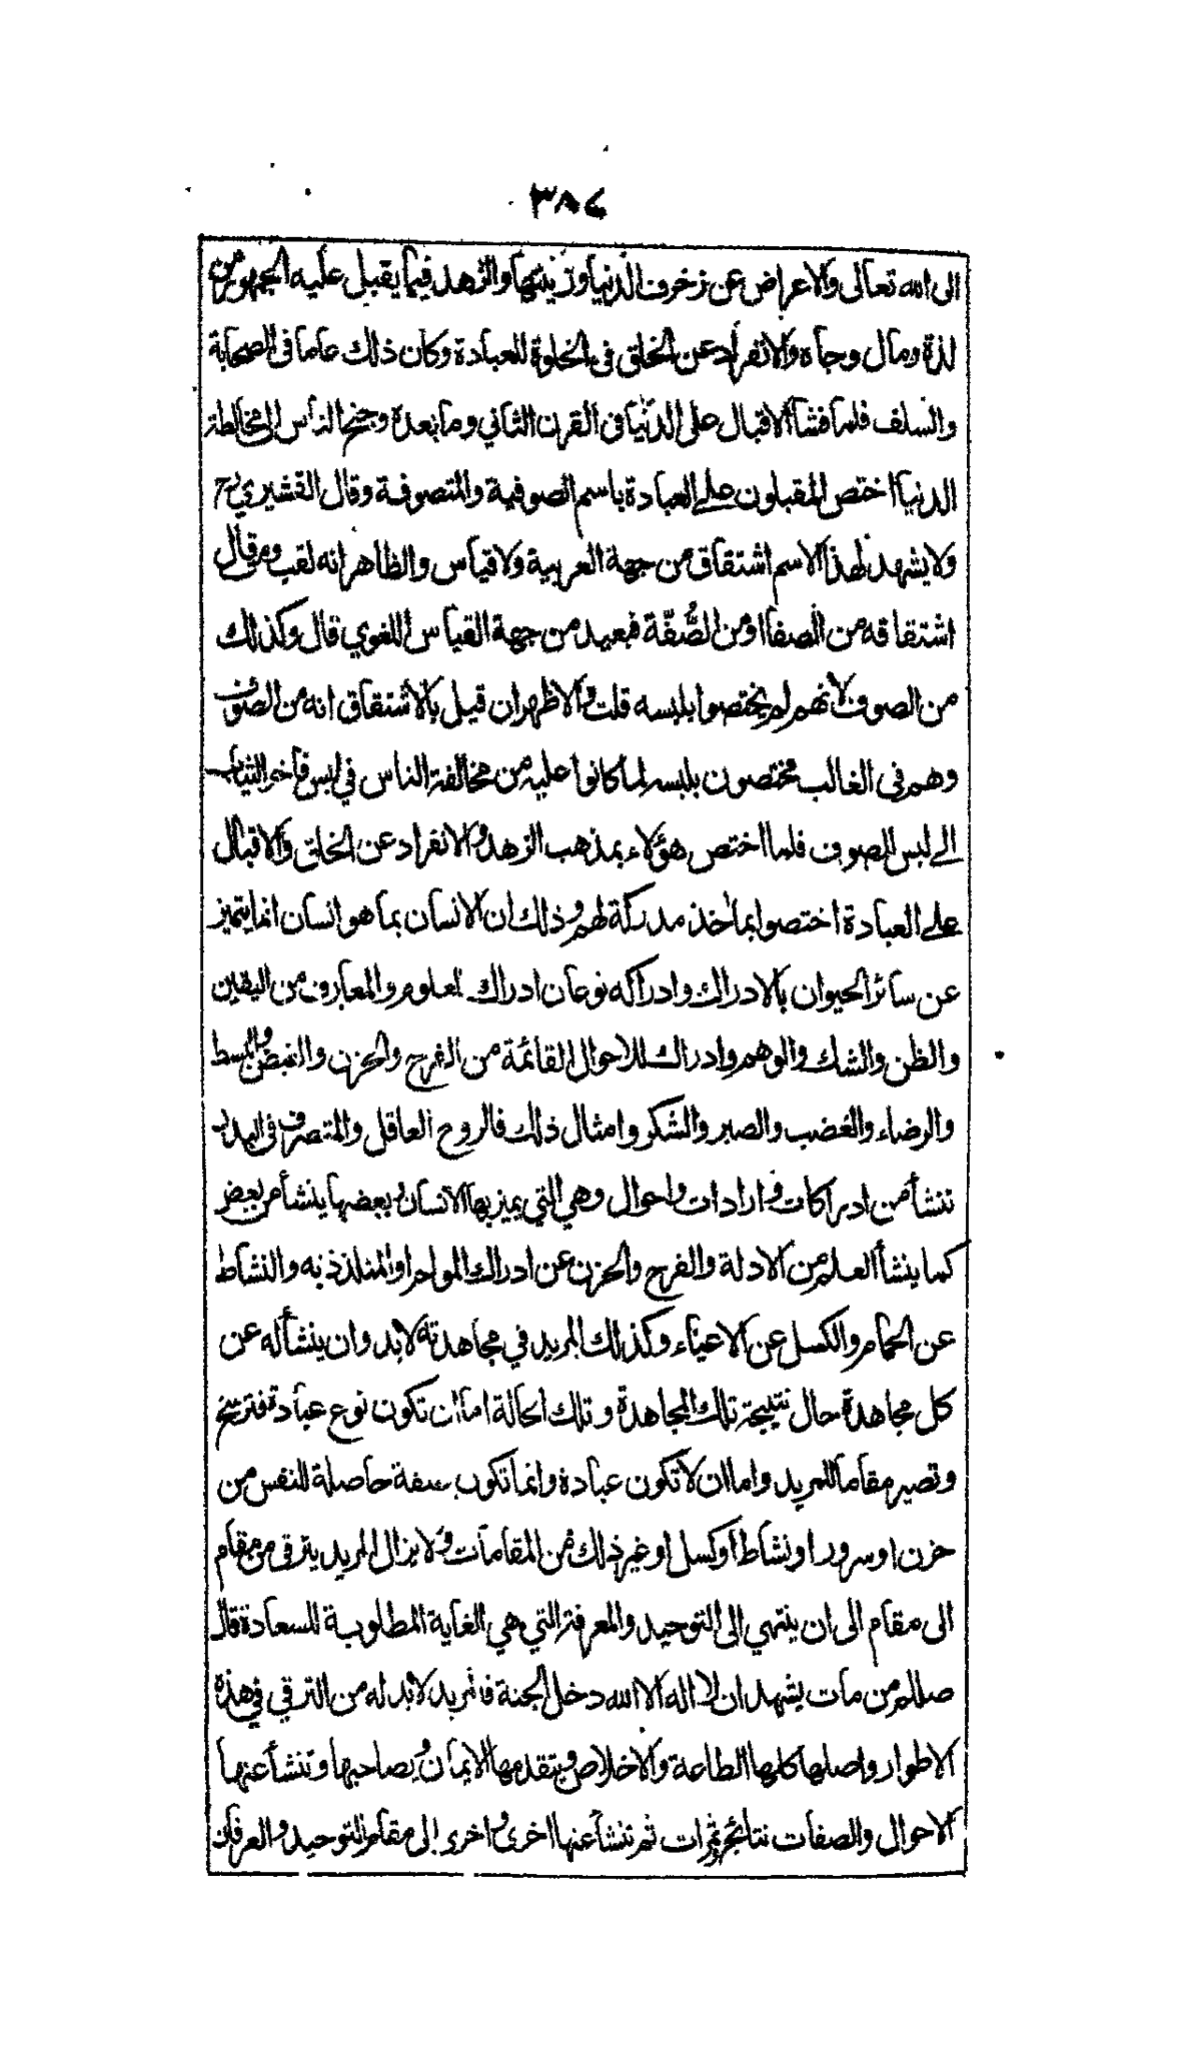 ٣٨٤
الى الله تعالى والاعراض عن زخرف الدنيا وزينتها والزهد فيما يقبل عليه الجمهور من
لذة ومال وجاه والانفراد عن الخلق فى الخلوة للعبادة وكان ذلك عاما فى الصحابة
والسلف فلما فشا الاقبال على الدنيا فى القرن الثاني وما بعده وجنح الناس الى مخالطة
الدنيا اختص المقبلون على العبادة باسم الصوفية والمتصوفة وقال القشيري رح
ولا يشهد لهذا الاسم اشتقاق من جهة العربية ولا قياس والظاهر انه لقب ومن قال
اشتقاقه من الصفا او من الصُّفّة فبعيد من جهة القياس اللغوي قال وكذلك
من الصوف لانهم لم يختصوا بلبسه قلت والاظهر ان قيل بالاشتقاق انه من الصوف
وهم فى الغالب مختصون بلبسه لما كانوا عليه من مخالفة الناس في لبس فاخر الثياب
الى لبس الصوف فلما اختص هؤلاء بمذهب الزهد والانفراد عن الخلق والاقبال
على العبادة اختصوا بماخذ مدركة لهم وذلك ان الانسان بما هو انسان انما يتميز
عن سائر الحيوان بالادراك وادراكه نوعان ادراك لعلوم والمعارف من اليقين
والظن والشك والوهم وادراك للاحوال القائمة من الفرح والحزن والقبض والبسط
والرضاء والغضب والصبر والشكر وامثال ذلك فالروح العاقل والمتصرف فى البدن
تنشأ من ادراكات وارادات واحوال وهي التي يميز بها الانسان وبعضها ينشأ من بعض
كما ينشأ العلم من الادلة والفرح والحزن عن ادراك المولم او المتلذذ به والنشاط
عن الحمام والكسل عن الاعياء وكذلك المريد في مجاهدته لابد وان ينشأ له عن
كل مجاهدة حال نتيجة تلك المجاهدة وتلك الحالة اما ان تكون نوع عبادة فترسخ
وتصير مقاما للمريد واما ان لا تكون عبادة وانما تكون صفة حاصلة للنفس من
حزن او سرور او نشاط او كسل او غير ذلك من المقامات ولا يزال المريد يترقى من مقام
الى مقام الى ان ينتهي الى التوحيد والمعرفة التي هي الغاية المطلوبة للسعادة قال
صللم من مات يشهد ان لا اله الا الله دخل الجنة فالمريد لابد له من الترقي في هذه
الاطوار واصلها كلها الطاعة والاخلاص ويتقدمها الايمان ويصاحبها وتنشأ عنها
الاحوال والصفات نتائج وثمرات ثم تنشأ عنها اخرى واخرى الى مقام التوحيد والعرفان